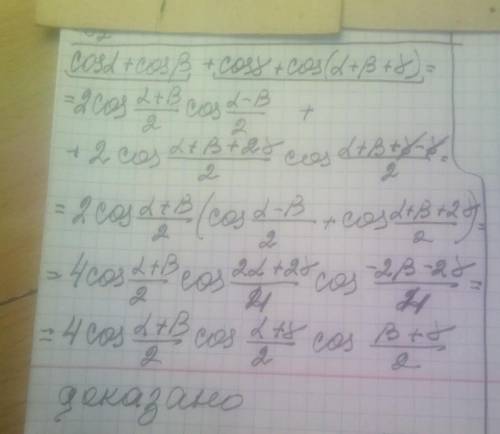 cosα+cosβ + cosγ+cos(α+β+γ)=
=2cos (α+β)/2 cos (α-β)/2 +
+ 2 cos (α+β+2γ)/2 cos (α+β+γ-γ)/2 =
=2cos (α+β)/2 (cos (α-β)/2 + cos (α+β+2γ)/2)=
=4cos (α+β)/2 cos (2α+2γ)/4 cos (-2β-2γ)/4 =
=4cos (α+β)/2 cos (α+γ)/2 cos (β+γ)/2
доказано